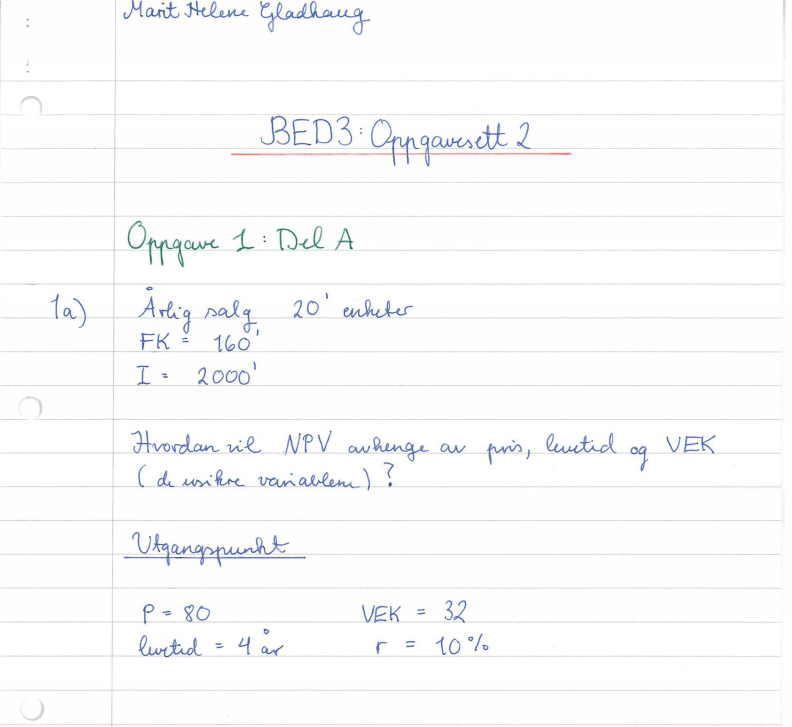 Marit Helene Gladhaug
BED3: Oppgavesett 2
Oppgave 1: Del A
1a) Årlig salg 20' enheter
FK = 160'
I = 2000'
Hvordan vil NPV avhenge av pris, levetid og VEK
(de usikre variablene)?
Utgangspunkt
P = 80 VEK = 32
levetid = 4 år r = 10%